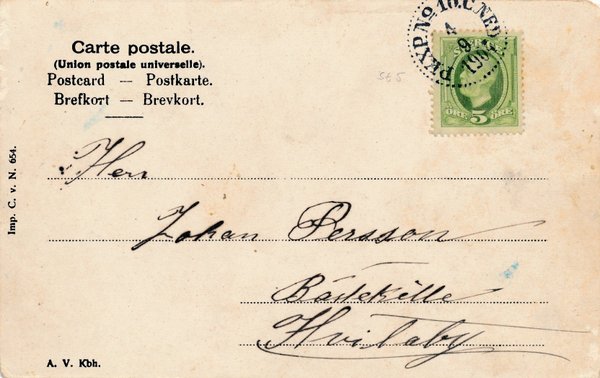 Carte postale.
(Union postale universelle).
Postcard — Postkarte.
Brefkort — Brevkort.
PKXP. No 10. C. NED
4
9
SVERIGE
ÖRE 5 ÖRE
565
Herr
Johan Persson
Båstekille
Hvitaby
Imp. C. v. N. 654.
A. V. Kbh.